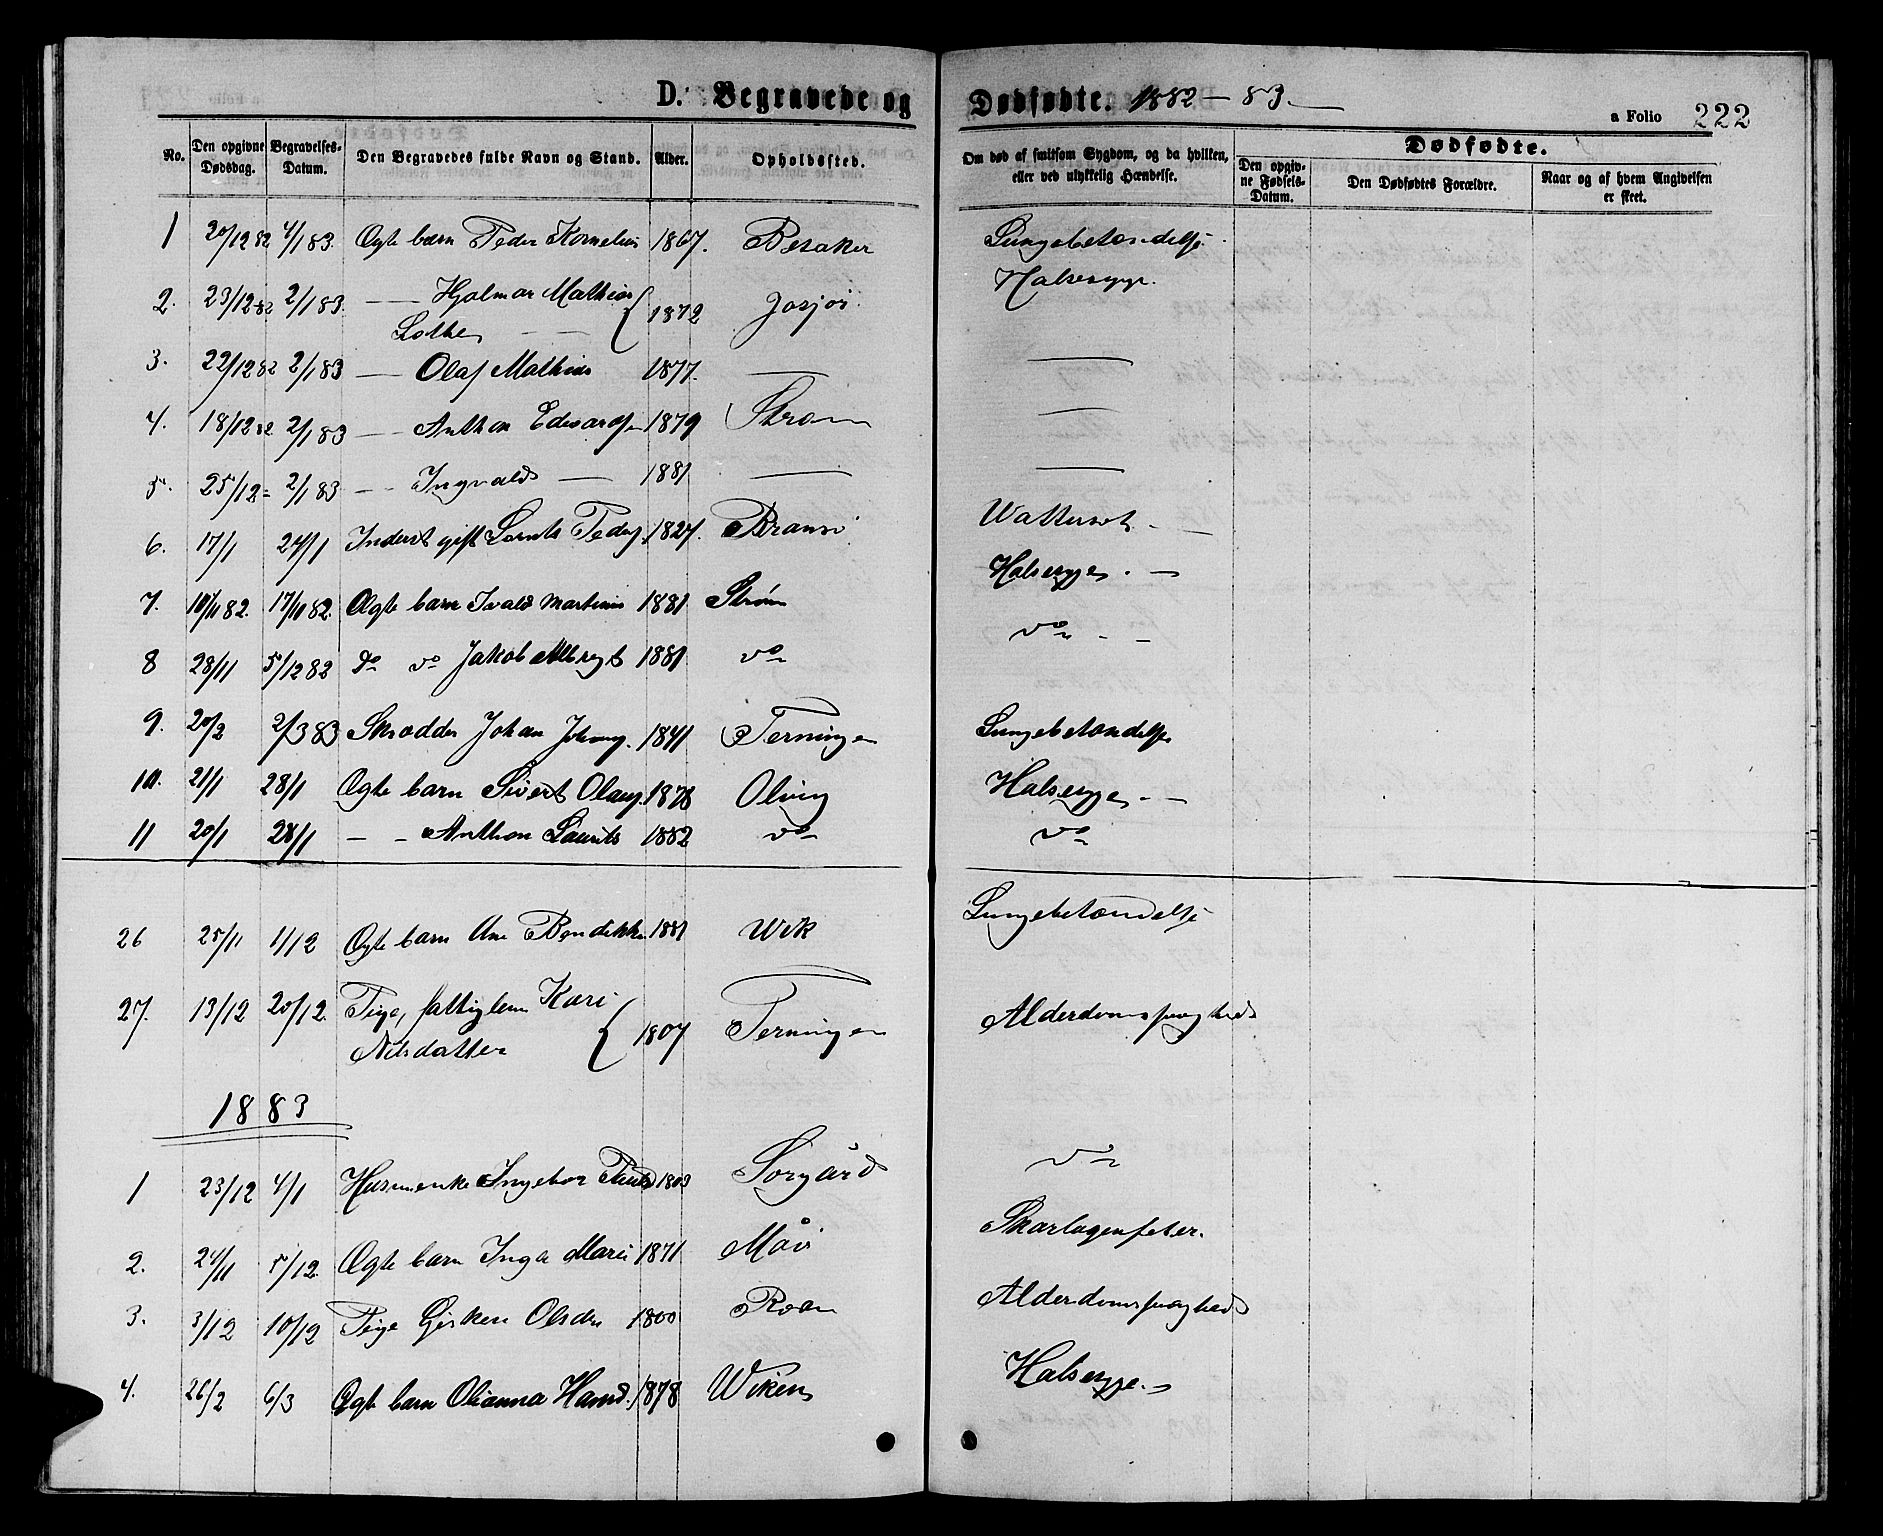 D. Begravede og Dødfødte. 1882-83.
a Folio 222
No. Den opgivne Dødsdag. Begravelses-Datum. Den Begravedes fulde Navn og Stand. Alder. Opholdssted. Om død af smitsom Sygdom, og da hvilken, eller ved ulykkelig Hændelse. Dødfødte.
Den opgivne Fødsels-Datum. Den Dødfødtes Forældre. Naar og af hvem Angivelsen er skeet.
1 20/12 82 4/1 83. Ægte barn Peder Kornelius 1867. Besaker Lungebetændelse
2. 23/12 82 2/1 83. — Hjalmar Mathias 1872 Halsesyge.
3. 22/12 82 2/1 83 — Olaf Mathias 1877. — —
4. 18/12 82 2/1 83 — Anthon Edvards 1879 Strøm —
5. 25/12 = 2/1 83 — Ingvald — 1881 — —
6. 17/1 24/1 Inderst gift Lornts Peders. 1827.
7. 10/11 82. 17/11 82. Ægte barn Ivald Martinus 1881 Strøm Halsesyge. —
8 28/11 5/12 82 do do Jakob Albregt 1881 do do
9. 20/2 2/3 83 Skrædder Johan Johans. 1841 Terningen Lungebetændelse
10. 21/1 28/1 Ægte barn Sivert Olaus 1878 Olving Halsesyge. —
11 20/1 28/1 — Anthon Laurits 1882 do do
26 25/11 1/12 Ægte barn Ane Bendikke 1881 Wik Lungebetændelse
27. 13/12 20/12. Pige, fattiglem Kari 1807 Terningen Alderdomssvaghed
Nilsdatter
1883
1 23/12 4/1 Husmenke Ingebor 1803 Sørgård do
2. 24/11 5/12. Ægte barn Inga Marie 1871 Skarlagensfeber.
3. 3/12 10/12 Pige Gjirken Olsdtr 1800 Roan Alderdomssvaghed
4. 26/2 6/3 Ægte barn Olianna Hansd. 1878 Wiken Halsesyge. —